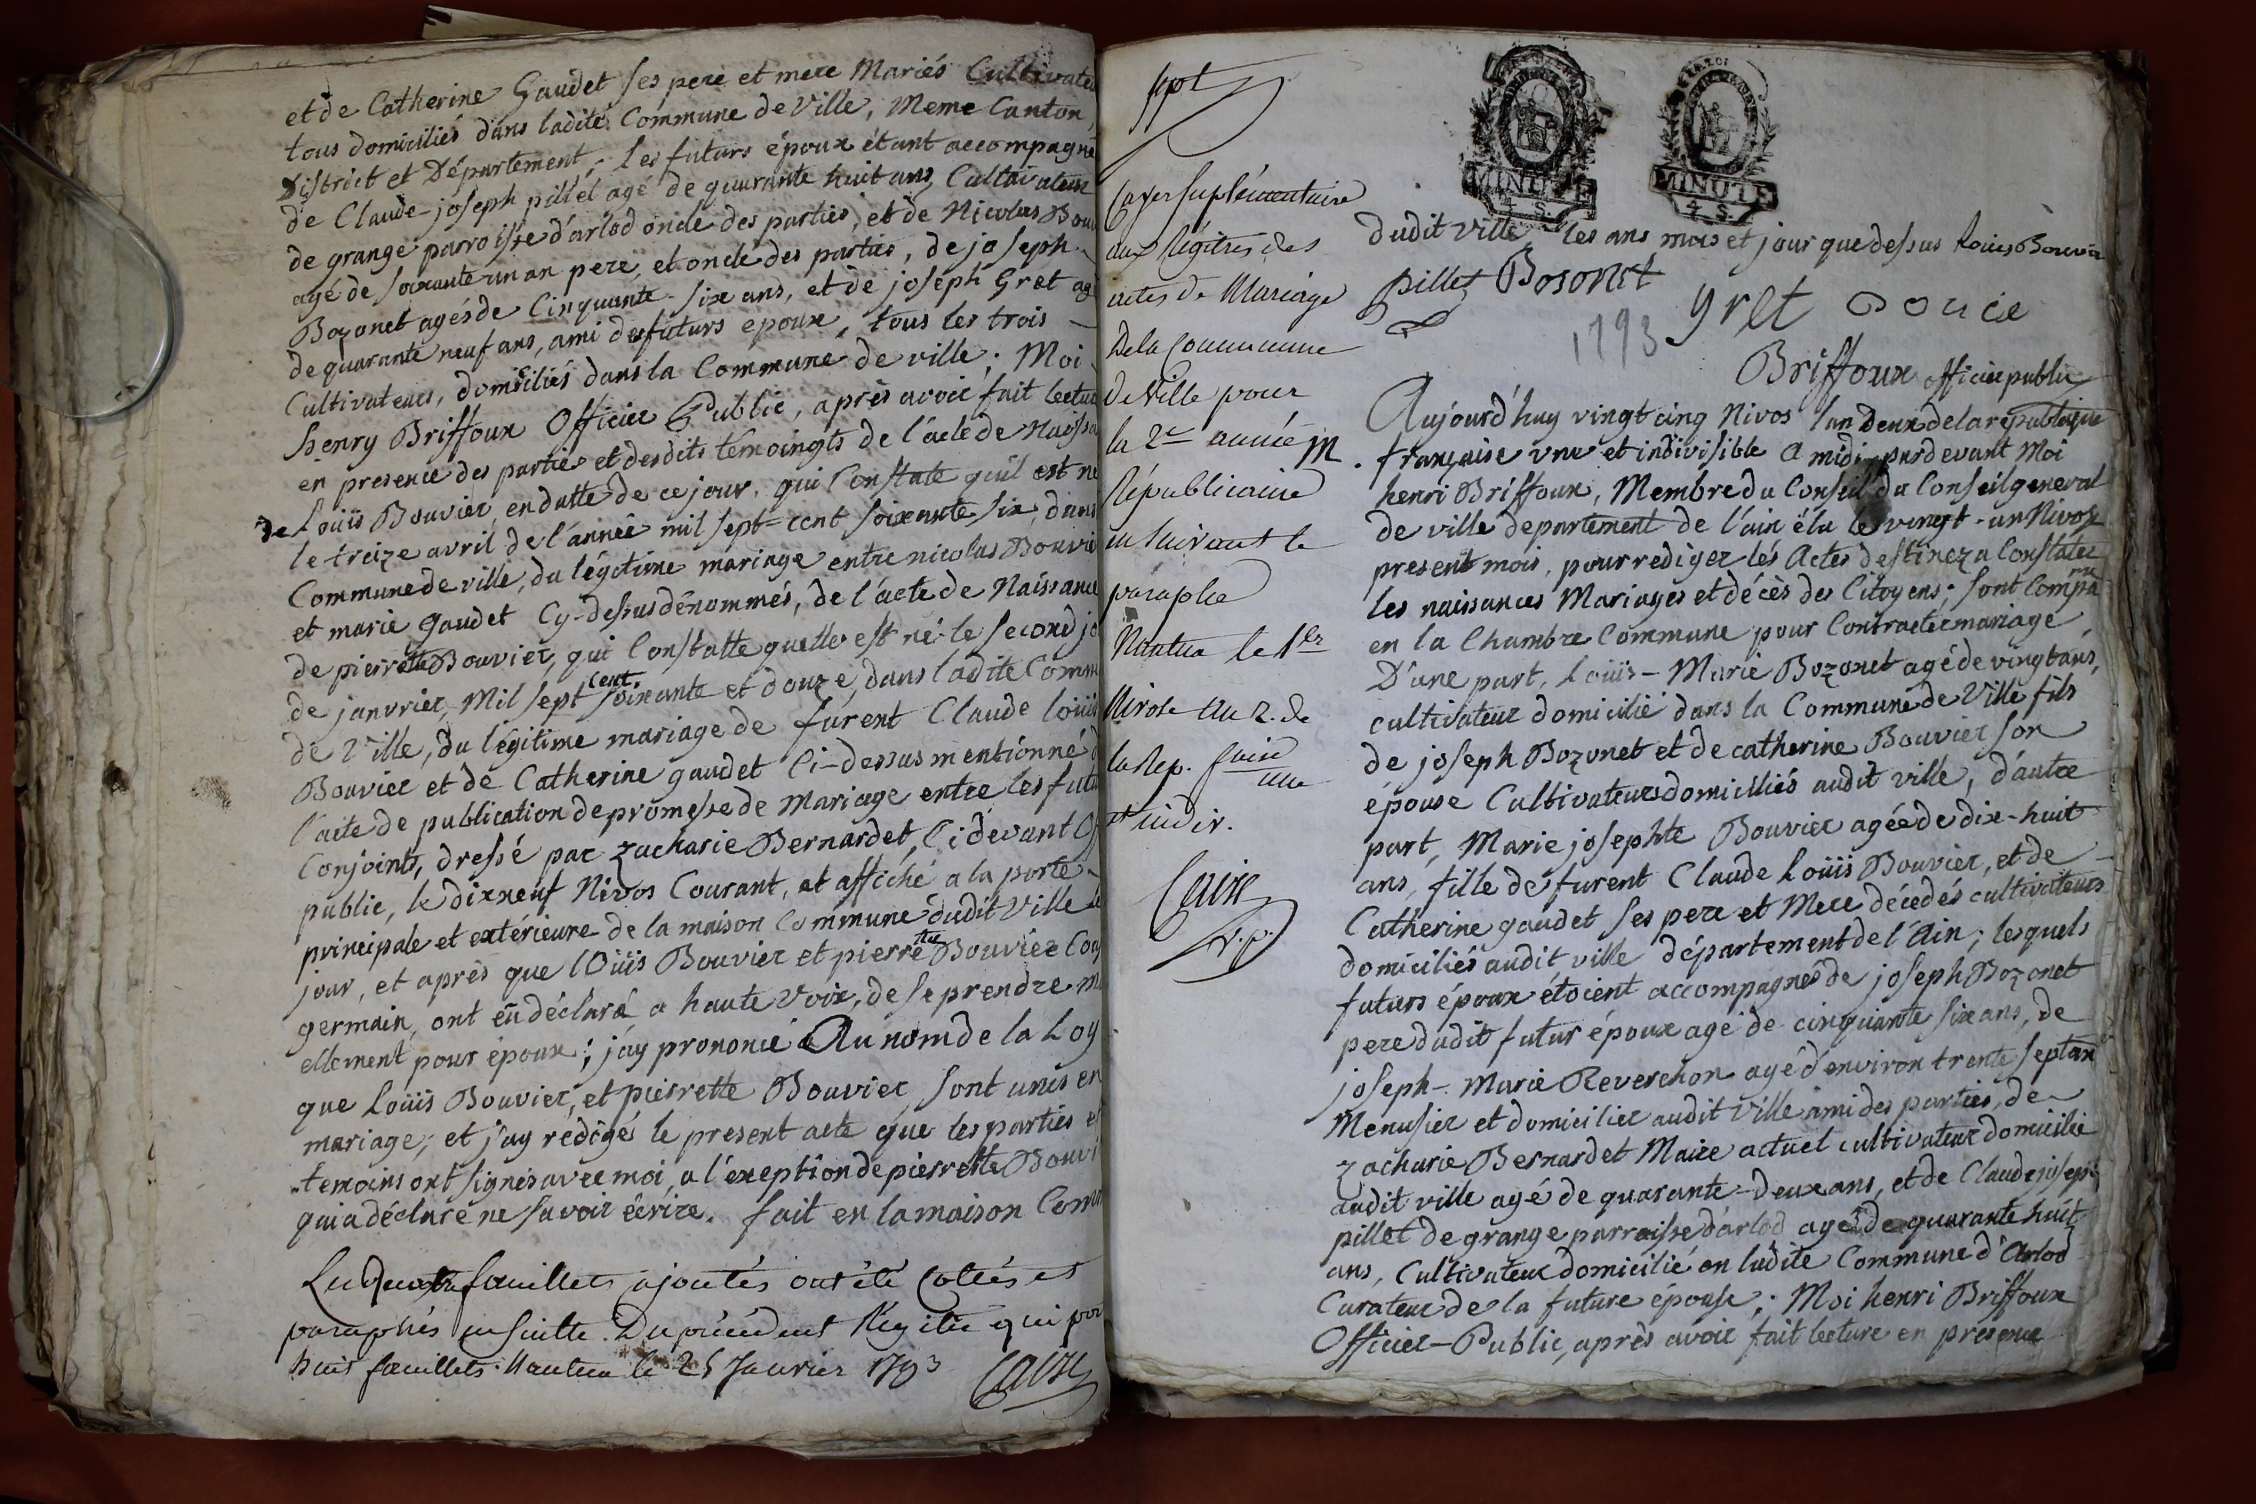 et de Catherine Gaudet ses pere et mere Mariés Cultivate
tous domiciliés dans ladite Commune de Ville, Meme Canton,
District et Département; les futurs époux étant accompagné
de Claude-joseph pillet agé de quarante huit ans, Cultivateur
de grange parroisse d'arlod oncle des parties, et de Nicolas Bou
agé de soixante un an pere, et oncle des parties, de joseph
Bozonet agés de Cinquante-six ans, et de joseph Gret ag
de quarante neuf ans, ami des futurs epoux, tous les trois
Cultivateurs, domiciliés dans la Commune de ville; Moi
henry Briffoux Officier Public, après avoir fait lectu
en presence des parties et desdits témoingts de l'acte de Naissa
de Loüis Bouvier, en datte de ce jour, qui Constate qu'il est né
le treize avril de l'année mil sept-cent soixante six, dans
Commune de ville, du légitime mariage entre nicolas Bouvie
et marie gaudet Cy-dessus dénommés, de l'acte de Naissance
de pierrette Bouvier, qui Constatte quelle est né le second jo
de janvrier, Mil sept cent soixante et douze, dans ladite Comm
de Ville, du légitime mariage de furent Claude loüis
Bouvier et de Catherine gaudet Ci-dessus mentionné d
l'acte de publication de promesse de Mariage entre les futu
Conjoints, dressé par zacharie Bernardet, Ci devant Of
public, le dixneuf Nivos Courant, et affiché a la porte
principale et extérieure de la maison Commune dudit Ville le
jour, et après que lOüis Bouvier et pierrette Bouvier Cou
germain, ont en déclaré a haute voix, de se prendre m
ellement pour époux; j'ay prononcé Au nom de la Loy
que Loüis Bouvier, et pierrette Bouvier sont unis en
mariage; et j'ay redigés le present acte que les parties et
temoins ont signés avec moi, a l'exeption de pierrette Bouvi
qui a déclaré ne savoir écrire. fait en la maison Comm
feuillets ajoutés ont été Cottés et
paraphés en suitte Du précédent Régitre qui por
huit feuillets. Nantua le 25 Janvier 1793
Caire
Cayer suplémentaire
aux Régitres des
actes de Mariage
De la Commune
De Ville pour
la 2e année
Républicaine
en suivant le
paraphe
Nantua le 1er
Nivose An 2. de
la Rep. faise
une
et indiv.
Caire
V.P.
MINUTE
4 S.
MINUTE
4 S.
dudit ville les ans, mois et jour que dessus Louis Bouvier
pillet Bosonet
gret
1793
Briffoux officier public
Aujourd'huy vingt cinq Nivos l'an Deux de la republique
française une et indivisible a midi pardevant Moi
henri Briffoux, Membre du Conseil du Conseil general
de ville departement de l'ain élu le vingt-un Nivos
present mois, pour rediger les Actes destinez a Constater
les naissances Mariages et décès des Citoyens; sont Comparu
en la Chambre Commune pour Contracter mariage
D'une part, Loüis-Marie Bozonet agé de vingt ans,
cultivateur domicilié dans la Commune de Ville fils
de joseph Bozonet et de catherine Bouvier son
épouse Cultivateurs domiciliés audit ville, d'autre
part, Marie josephte Bouvier agée de dix-huit
ans, fille de furent Claude Loüis Bouvier, et de
Catherine gaudet ses pere et Mere décedés cultivateurs
domiciliés audit ville département de l'Ain; lesquels
futurs époux étoient accompagnés de joseph Bozonet
pere dudit futur époux agé de cinquante six ans, de
joseph-Marie Reverchon agé d'environ trente sept an
Menusier et domicilier audit Ville ami des parties, de
zacharie Bernardet Maire actuel cultivateur domicilié
audit ville agé de quarante-deux ans, et de Claude joseph
pillet de grange parroisse d'arlod agé de quarante huit
ans, Cultivateur domicilié en ladite Commune d'Arlod
Curateur de la future épouse; Moi henri Briffoux
Officier-Public, après avoir fait lecture en presence